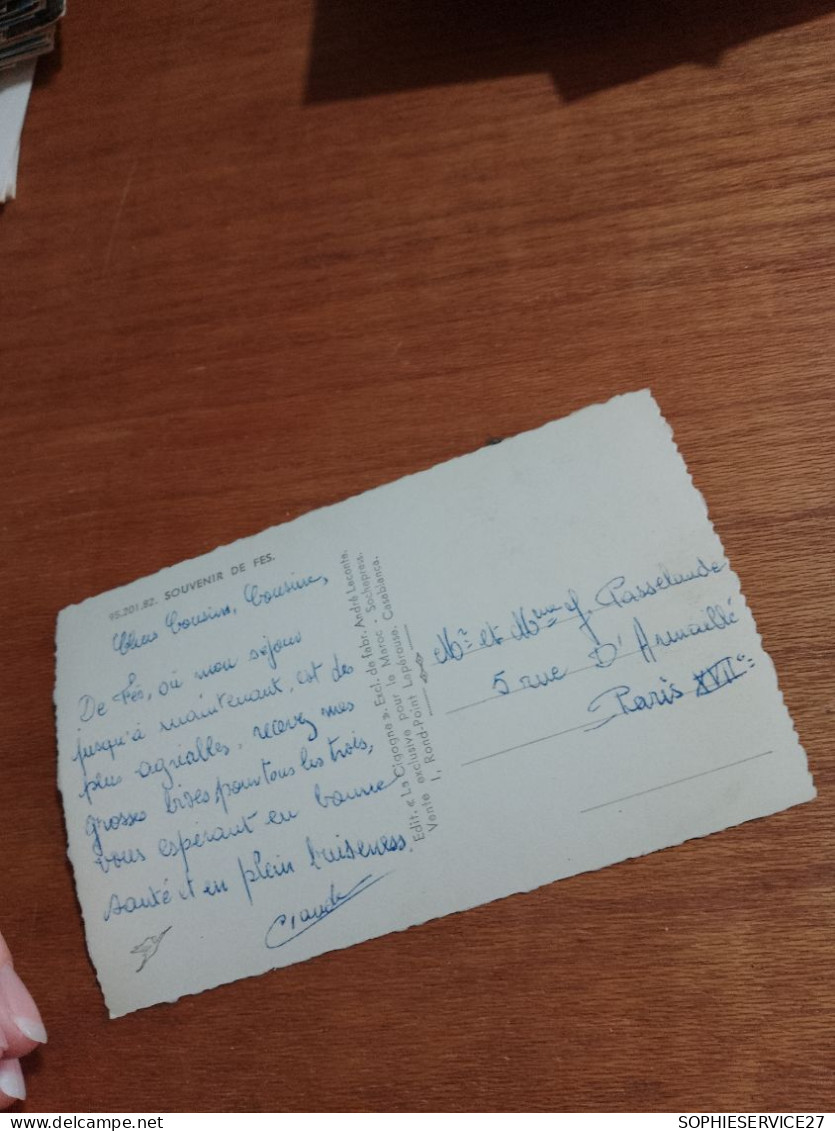 95.201.82. SOUVENIR DE FES.
Chers Cousin, Cousine,
De Fés, où mon séjour
jusqu'à maintenant, est des
plus agréables, recevez mes
grosses bises, pour tous les trois,
vous espérant en bonne
santé et en plein buiseness
Claude
Edit. « La Cigogne ». Excl. de fabr. André Leconte.
Vente exclusive pour le Maroc - Sochepress.
1, Rond-Point Lapérouse, Casablanca.
Mr et Mme J. Passelaude
5 rue D'Armaillé
Paris XVIIe
SOPHIESERVICE27